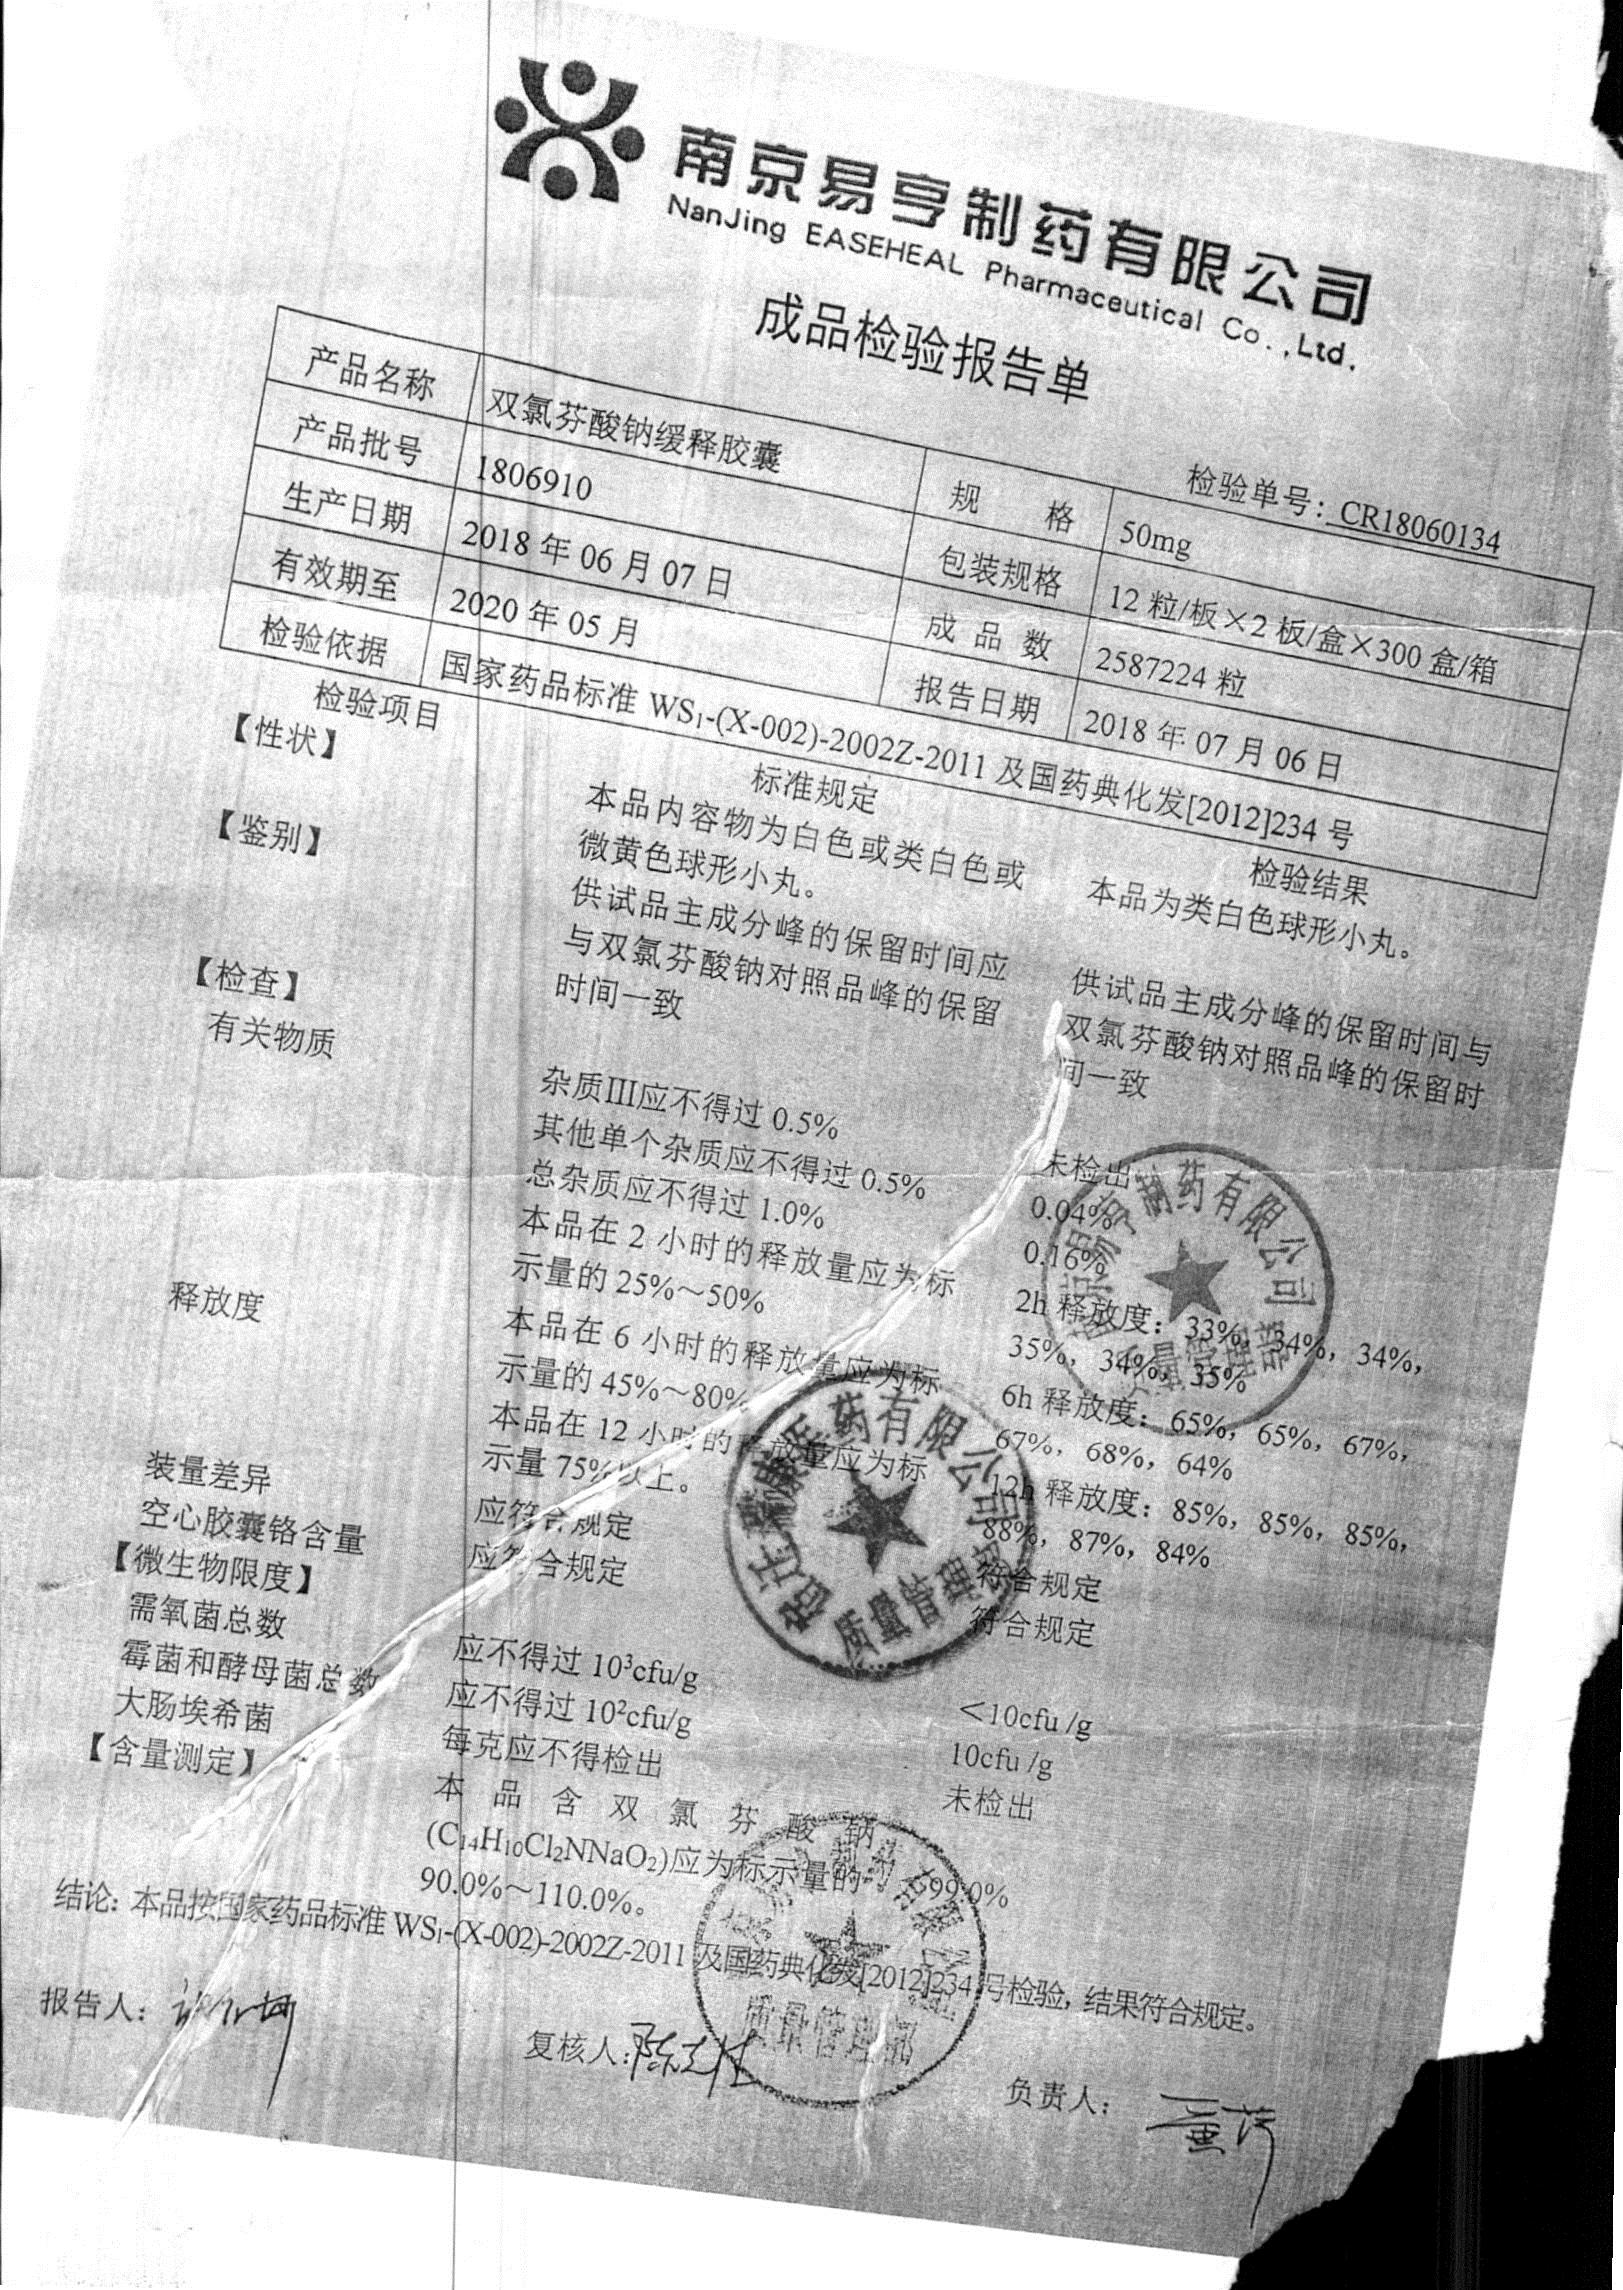 南京易亨制药有限公司
NanJing EASEHEAL Pharmaceutical Co.,Ltd.
成品检验报告单
检验单号：CR18060134
产品名称 双氯芬酸钠缓释胶囊 规 格 50mg
产品批号 1806910 包装规格 12粒/板×2板/盒×300盒/箱
生产日期 2018年06月07日 成品数 2587224粒
有效期至 2020年05月 报告日期 2018年07月06日
检验依据 国家药品标准 WS₁-(X-002)-2002Z-2011 及国药典化发[2012]234号
检验项目 标准规定 检验结果
【性状】 本品内容物为白色或类白色或 本品为类白色球形小丸。
微黄色球形小丸。
【鉴别】 供试品主成分峰的保留时间应 供试品主成分峰的保留时间与
与双氯芬酸钠对照品峰的保留 双氯芬酸钠对照品峰的保留时
时间一致 间一致
【检查】
有关物质 杂质III应不得过0.5% 未检出
其他单个杂质应不得过0.5% 0.04%
总杂质应不得过1.0% 0.16%
释放度 本品在2小时的释放量应为标 2h释放度：33%，34%，34%，
示量的25%～50% 35%，34%，35%
本品在6小时的释放量应为标 6h释放度：65%，65%，67%，
示量的45%～80% 67%，68%，64%
本品在12小时的释放量应为标 12h释放度：85%，85%，85%，
示量75%以上。 88%，87%，84%
装量差异 应符合规定 符合规定
空心胶囊铬含量 应符合规定 符合规定
【微生物限度】
需氧菌总数 应不得过10³cfu/g ＜10cfu/g
霉菌和酵母菌总数 应不得过10²cfu/g 10cfu/g
大肠埃希菌 每克应不得检出 未检出
【含量测定】 本品含双氯芬酸钠
(C₁₄H₁₀Cl₂NNaO₂)应为标示量的 99.0%
90.0%～110.0%。
结论：本品按国家药品标准 WS₁-(X-002)-2002Z-2011 及国药典化发[2012]234号检验，结果符合规定。
报告人：
复核人：
负责人：
制药有限公司
质量管理部
医药有限公司
质量管理部
制药有限公司
质量管理部